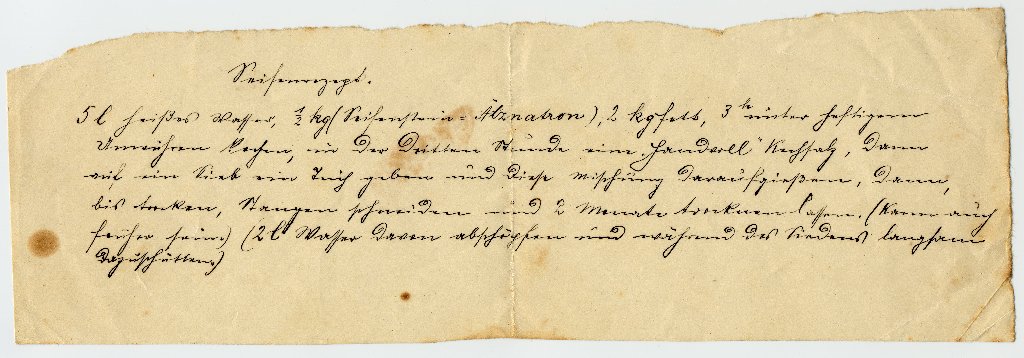 Seifenrezept.
5 l heißes Wasser, ½ kg (Seifenstein = Ätznatron), 2 kg Fett, 3 h unter heftigem
Umrühren kochen, in der dritten Stunde eine "Handvoll" Kochsalz, dann
auf ein Sieb ein Tuch geben und diese Mischung daraufgießen, dann,
bis trocken, Stangen schneiden und 2 Monate trocknen lassen. (Kann auch
früher sein) (2 l Wasser davon abschöpfen und während des Siedens langsam
dazuschütten.)